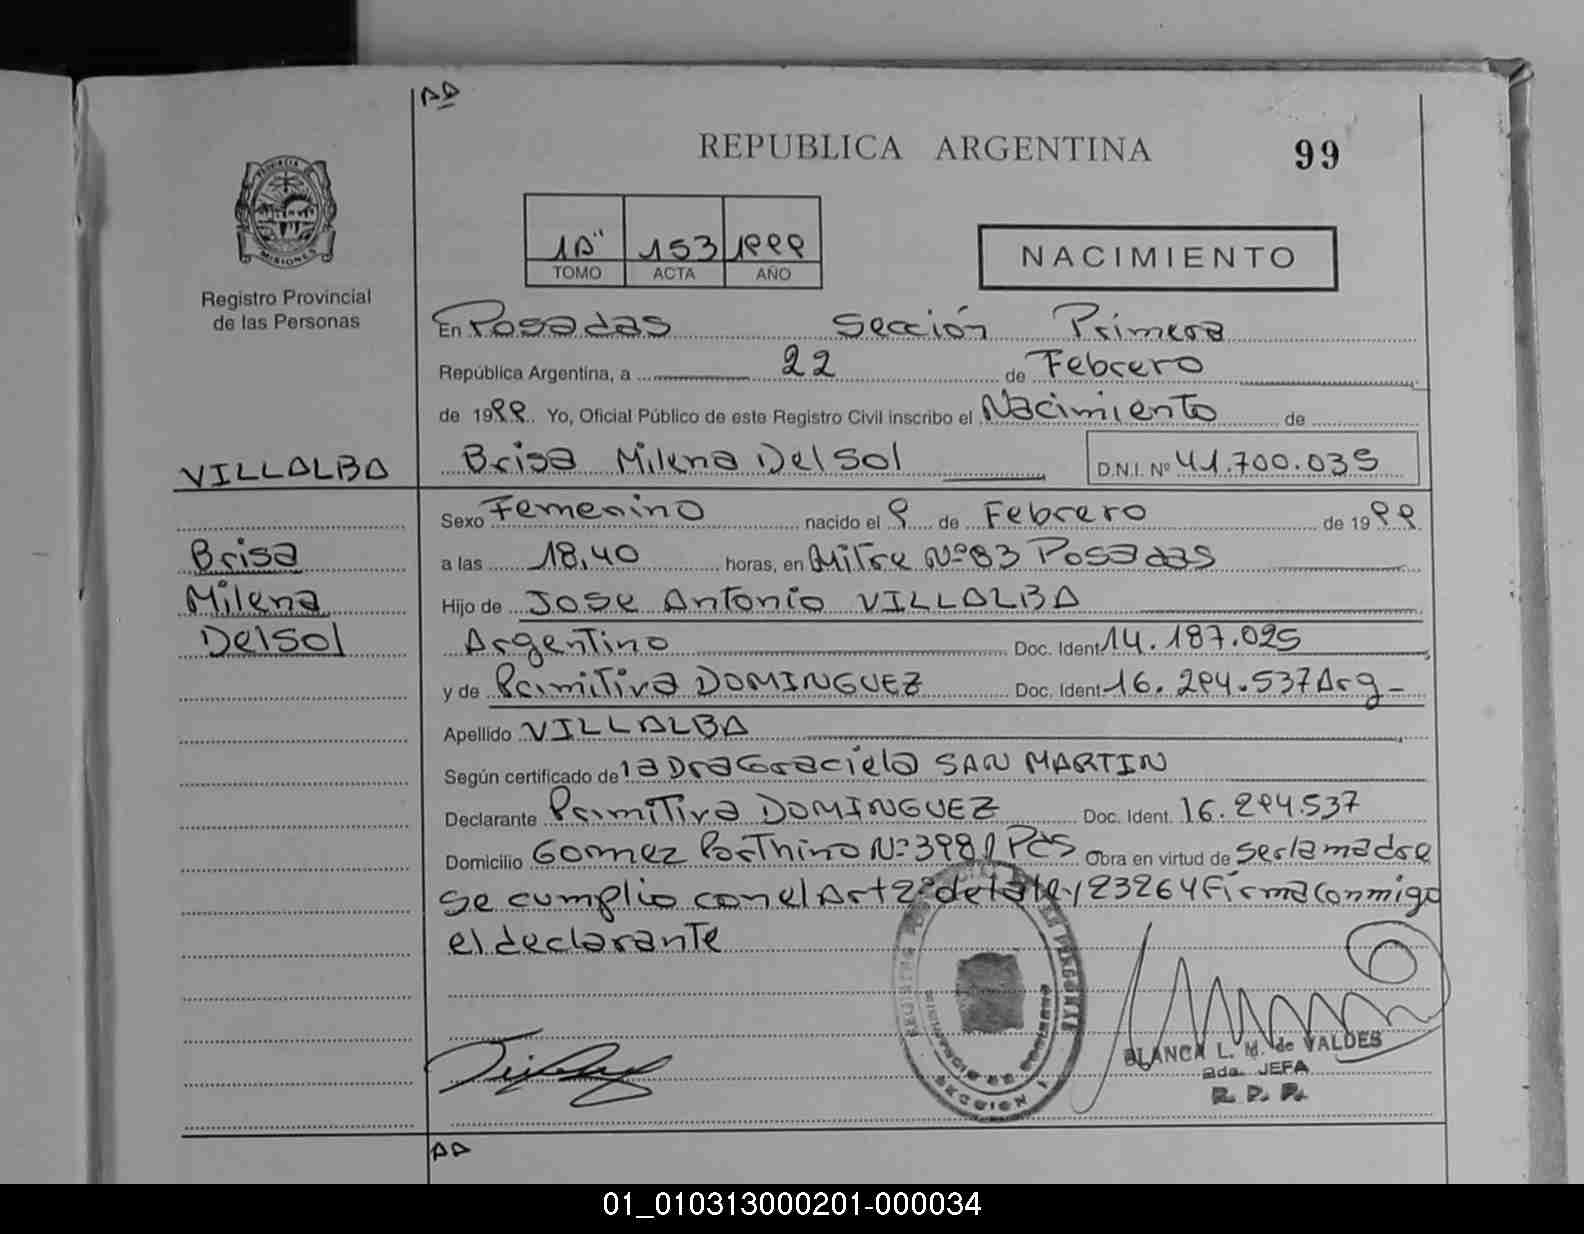 AD
REPUBLICA ARGENTINA
99
PROVINCIA
MISIONES
Registro Provincial
de las Personas
1A" 153 1999
TOMO ACTA AÑO
NACIMIENTO
En Posadas Sección Primera
República Argentina, a 22 de Febrero
de 1999. Yo, Oficial Público de este Registro Civil inscribo el Nacimiento de
VILLALBA
Brisa Milena Del Sol D.N.I. Nº 41.700.035
Sexo Femenino nacido el 9 de Febrero de 1999
Brisa
Milena
Del Sol
a las 18,40 horas, en Mitre Nº 83 Posadas
Hijo de Jose Antonio VILLALBA
Argentino Doc. Ident 14.187.025
y de Primitiva DOMINGUEZ Doc. Ident 16.294.537 Arg-
Apellido VILLALBA
Según certificado de la Dra Graciela SAN MARTIN
Declarante Primitiva DOMINGUEZ Doc. Ident. 16.294.537
Domicilio Gomez Porthino Nº 3981 Pds Obra en virtud de ser la madre
se cumplio con el Art 2º de la ley 23264 Firma conmigo
el declarante
SECCION 1
BLANCA L. M. de VALDES
2da. JEFA
R. P. P.
AD
01_010313000201-000034